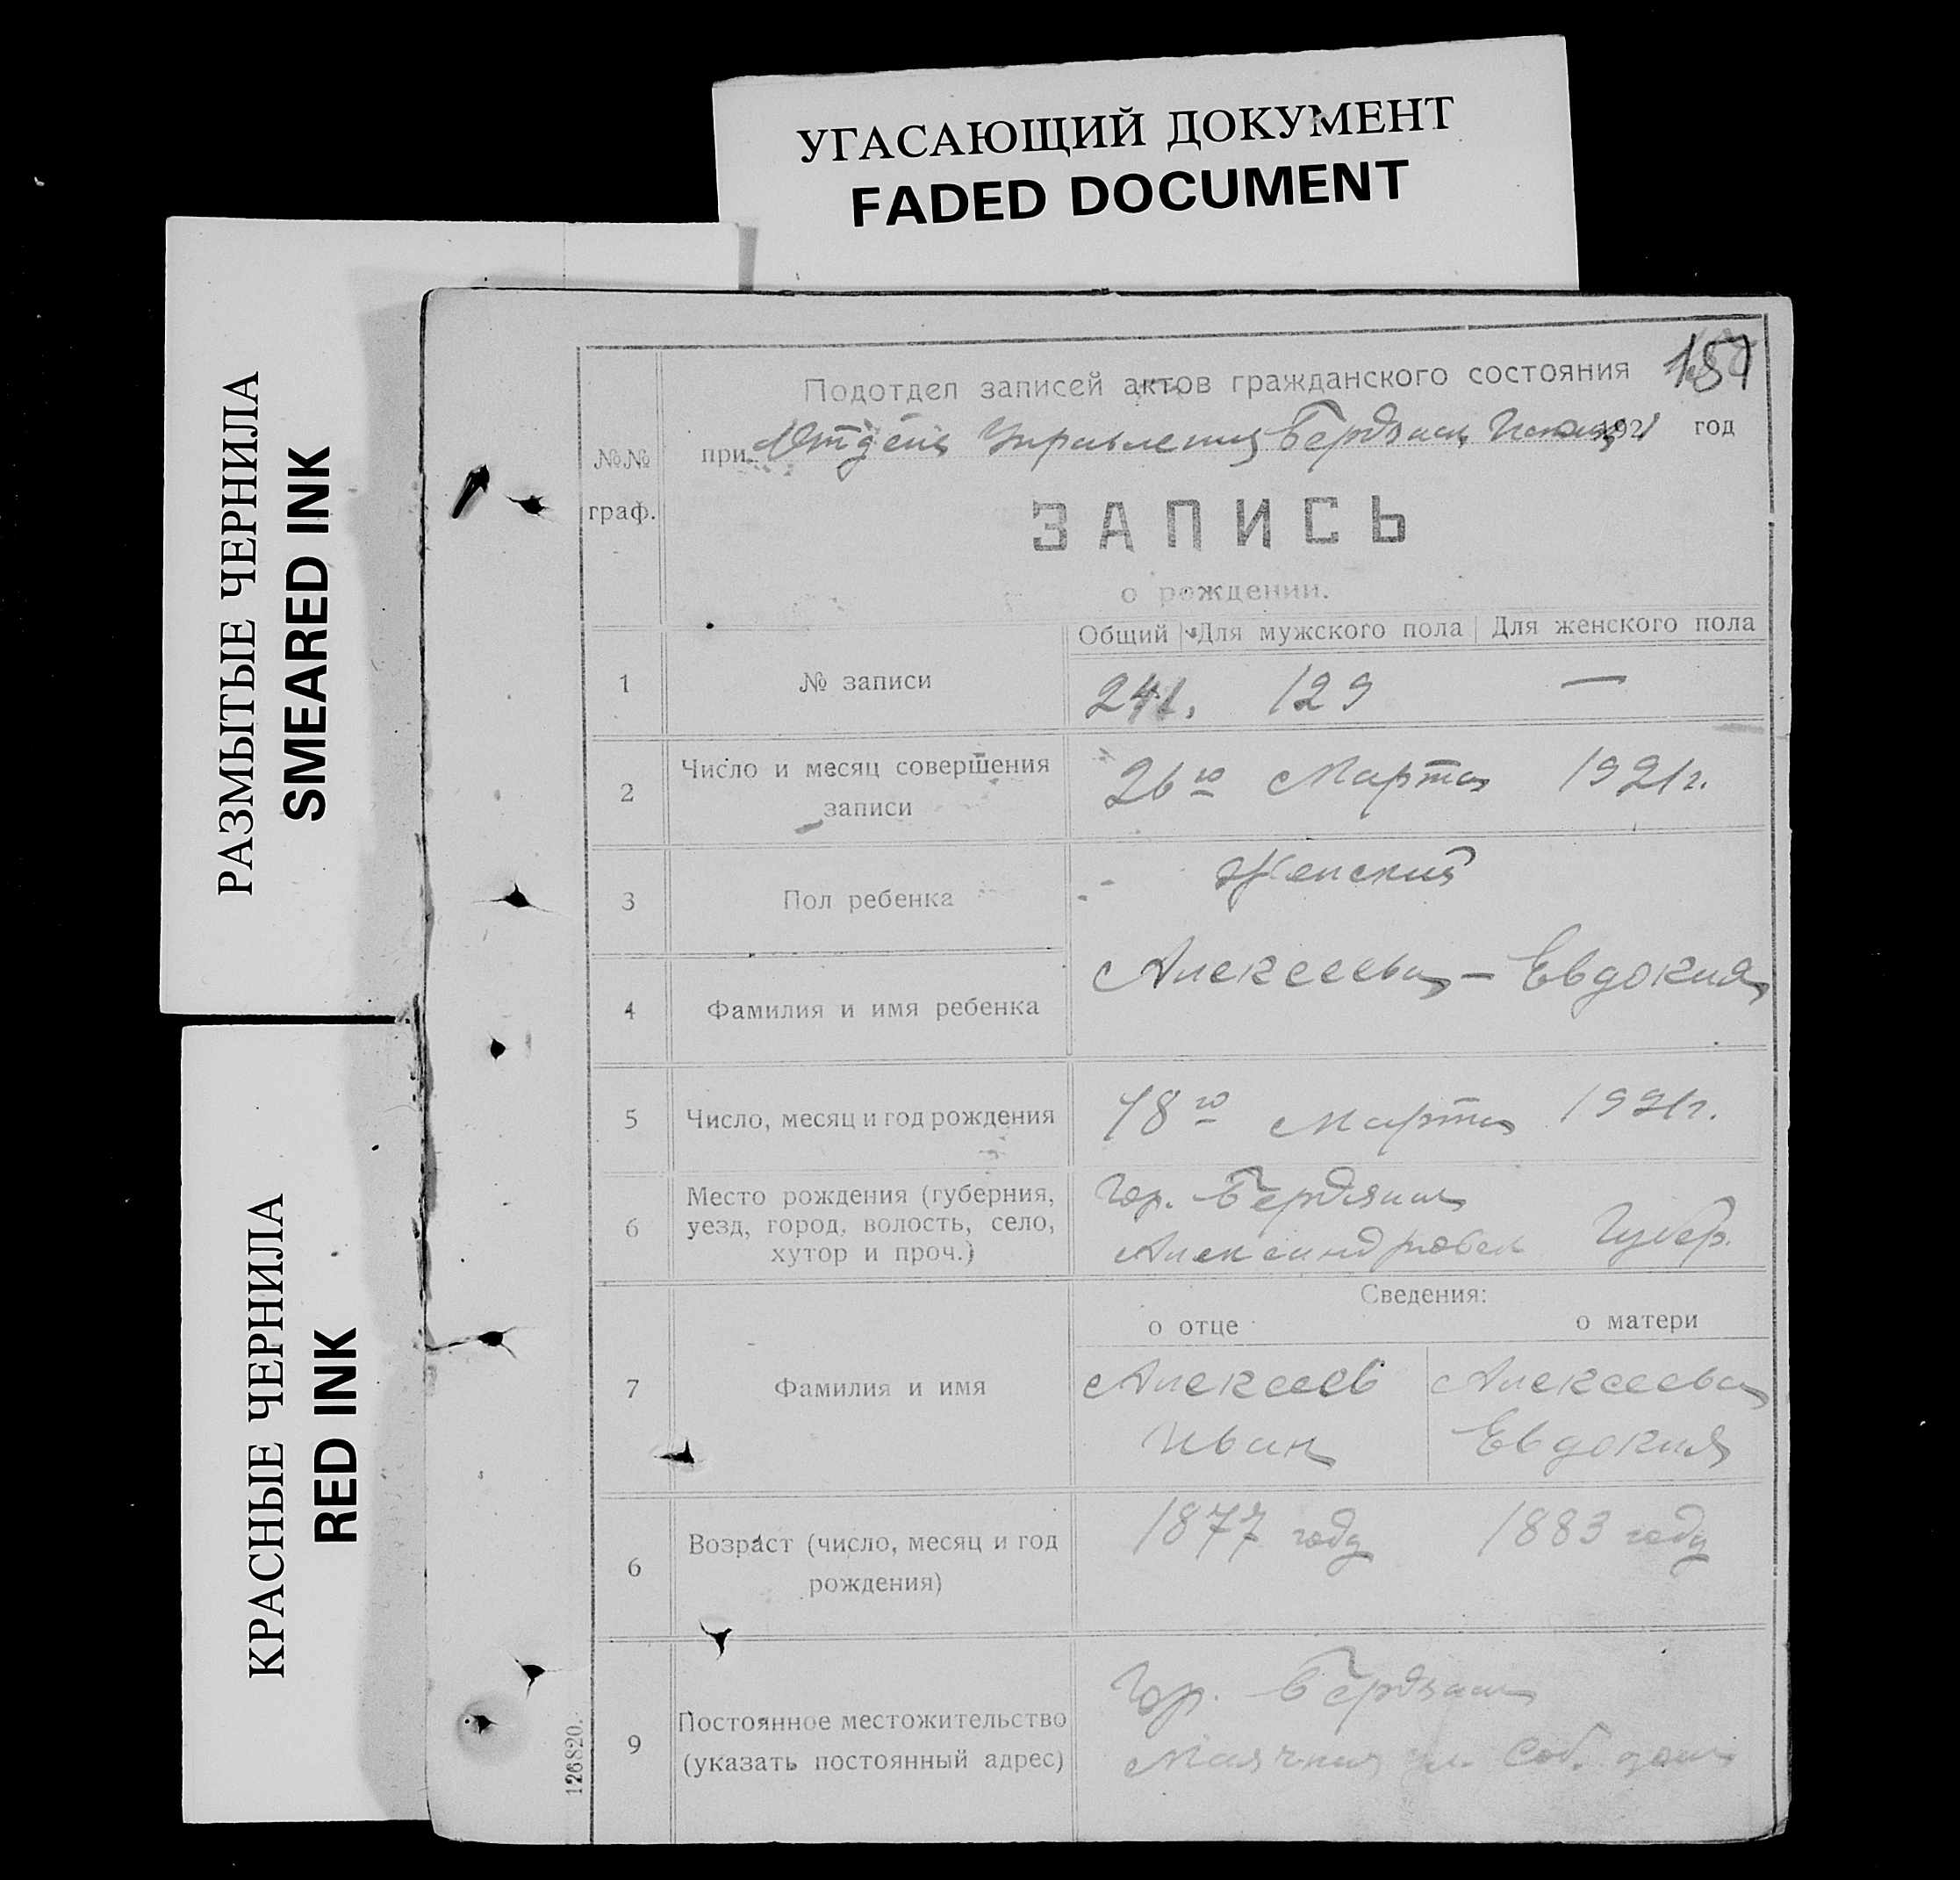 УГАСАЮЩИЙ ДОКУМЕНТ
FADED DOCUMENT
РАЗМЫТЫЕ ЧЕРНИЛА
SMEARED INK
КРАСНЫЕ ЧЕРНИЛА
RED INK
Подотдел записей актов гражданского состояния
№№ граф.
при Отделе Управления Бердянск 1921 год
ЗАПИСЬ
о рождении.
Общий Для мужского пола Для женского пола
1 № записи 241. 129 —
2 Число и месяц совершения записи 26го Марта 1921г.
3 Пол ребенка Женский
4 Фамилия и имя ребенка Алексеева - Евдокия
5 Число, месяц и год рождения 18го Марта 1921г.
6 Место рождения (губерния, уезд, город, волость, село, хутор и проч.) Гор. Бердянск
Александровск Губер.
Сведения:
о отце о матери
7 Фамилия и имя Алексеев Алексеева
Иван Евдокия
6 Возраст (число, месяц и год рождения) 1877 году 1883 году
9 Постоянное местожительство (указать постоянный адрес) Гор. Бердянск
Маячная ул. Соб. дом
126820.